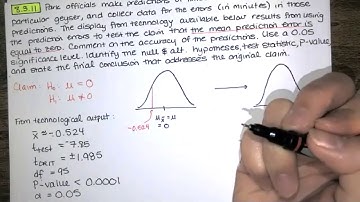 8.3.11 Park officials make predictions of
particular geyser, and collect data for the errors (in minutes) in those
predictions. The display from technology available below results from using
the prediction errors to test the claim that the mean prediction error is
equal to zero. Comment on the accuracy of the predictions. Use a 0.05
significance level. Identify the null & alt. hypotheses, test statistic, P-value,
and state the final conclusion that addresses the original claim.
Claim: H₀: μ = 0
H₁: μ ≠ 0
-0.524
μx̄ = μ
= 0
From technological output:
x̄ = -0.524
t_TEST = -7.85
t_CRIT = ±1.985
df = 95
P-value < 0.0001
α = 0.05